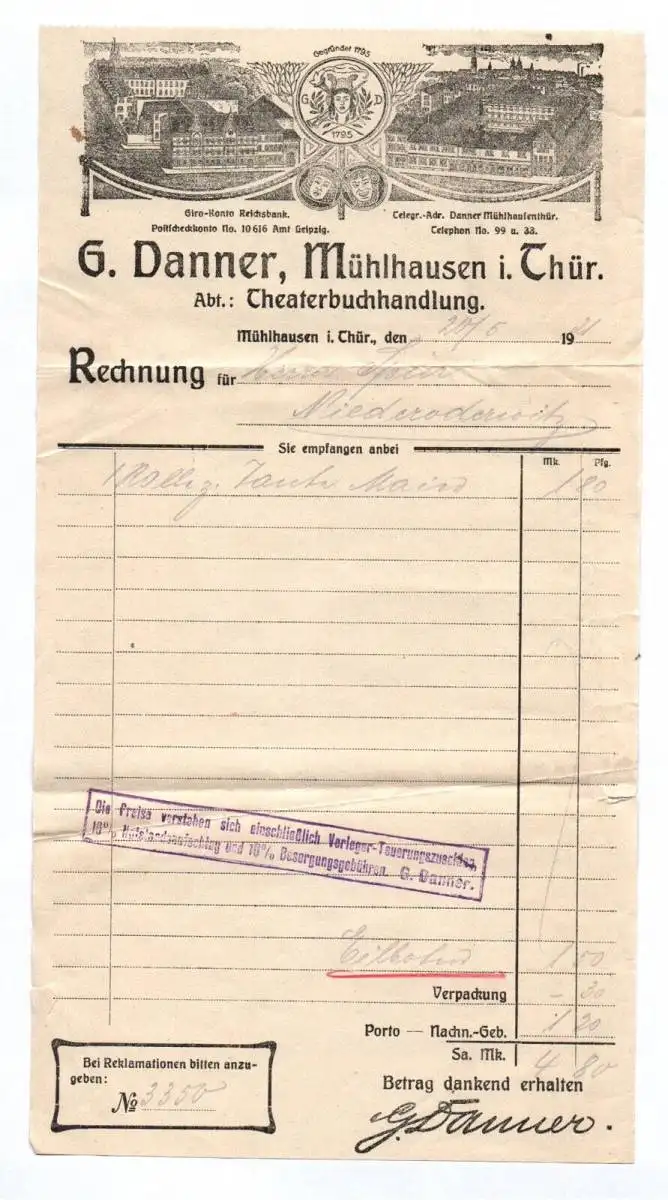 Gegründet 1795
G D
1795
Giro-Konto Reichsbank.
Postscheckkonto No. 10616 Amt Leipzig.
Telegr.-Adr. Danner Mühlhausenthür.
Telephon No. 99 u. 33.
G. Danner, Mühlhausen i. Thür.
Abt.: Theaterbuchhandlung.
Mühlhausen i. Thür., den 20/5 1921
Rechnung für Herrn
Niederoderwitz
Sie empfangen anbei
Mk. Pfg.
1 Tante 1 80
Die Preise verstehen sich einschließlich Verleger-Teuerungszuschlag,
10% Notstandsaufschlag und 10% Besorgungsgebühren. G. Danner.
Eilboten 1 50
Verpackung – 30
Porto — Nachn.-Geb. 1 20
Sa. Mk. 4 80
Bei Reklamationen bitten anzu-
geben:
No 3350
Betrag dankend erhalten
G. Danner.